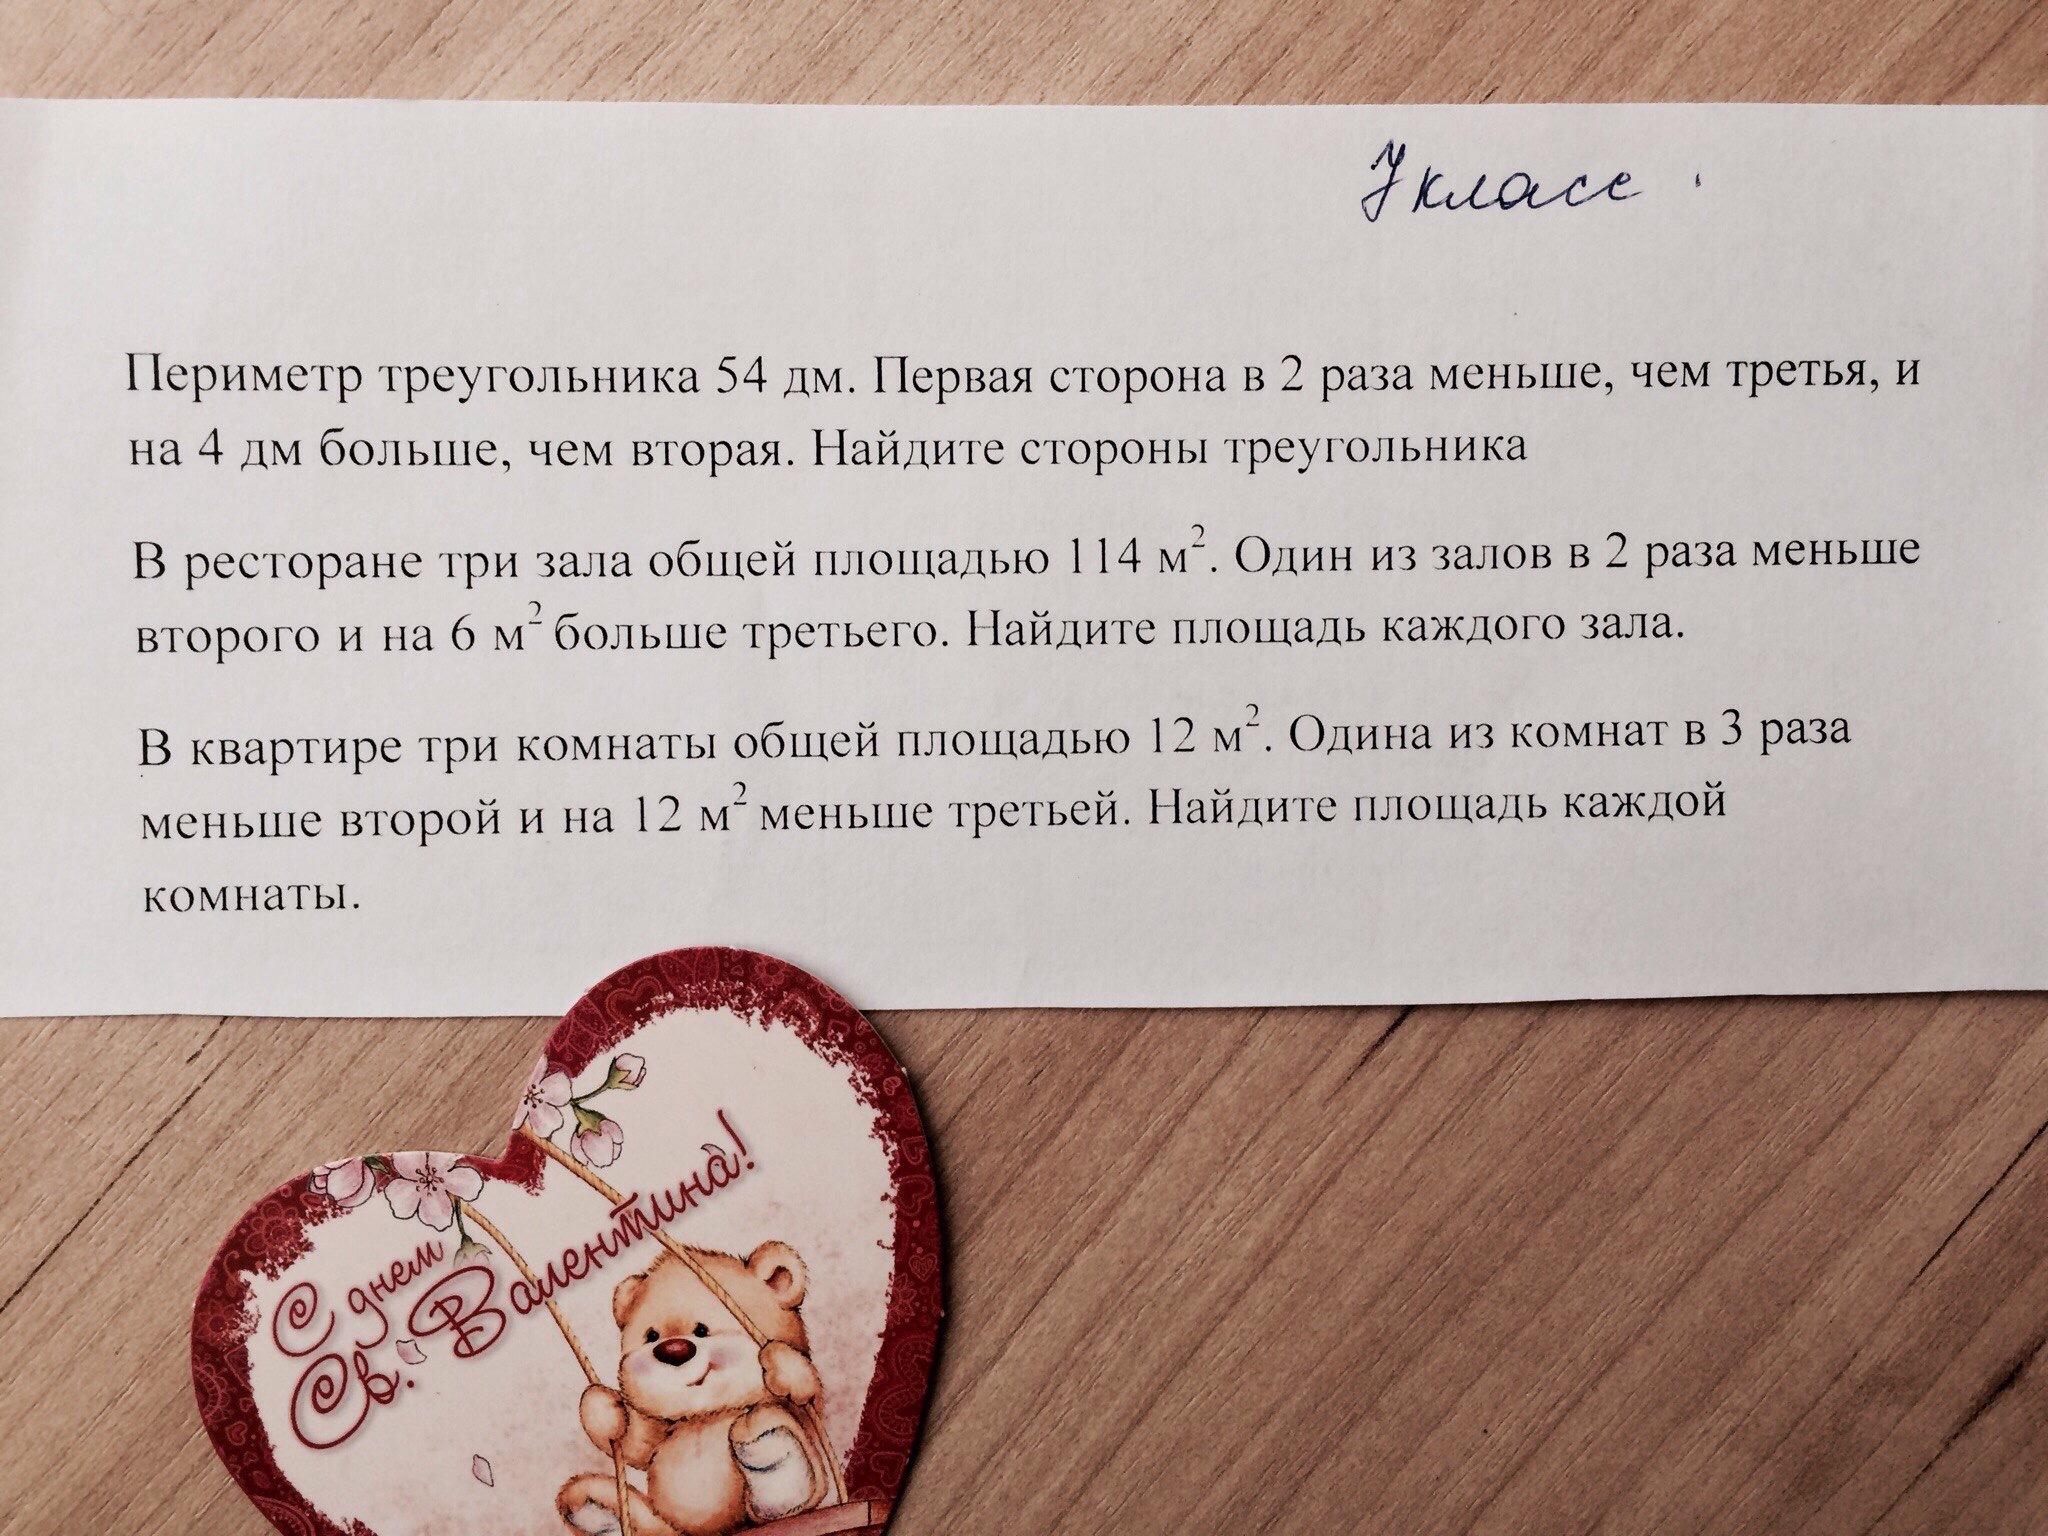 7 класс.
Периметр треугольника 54 дм. Первая сторона в 2 раза меньше, чем третья, и
на 4 дм больше, чем вторая. Найдите стороны треугольника
В ресторане три зала общей площадью 114 м². Один из залов в 2 раза меньше
второго и на 6 м² больше третьего. Найдите площадь каждого зала.
В квартире три комнаты общей площадью 12 м². Одина из комнат в 3 раза
меньше второй и на 12 м² меньше третьей. Найдите площадь каждой
комнаты.
С днем
Св. Валентина!